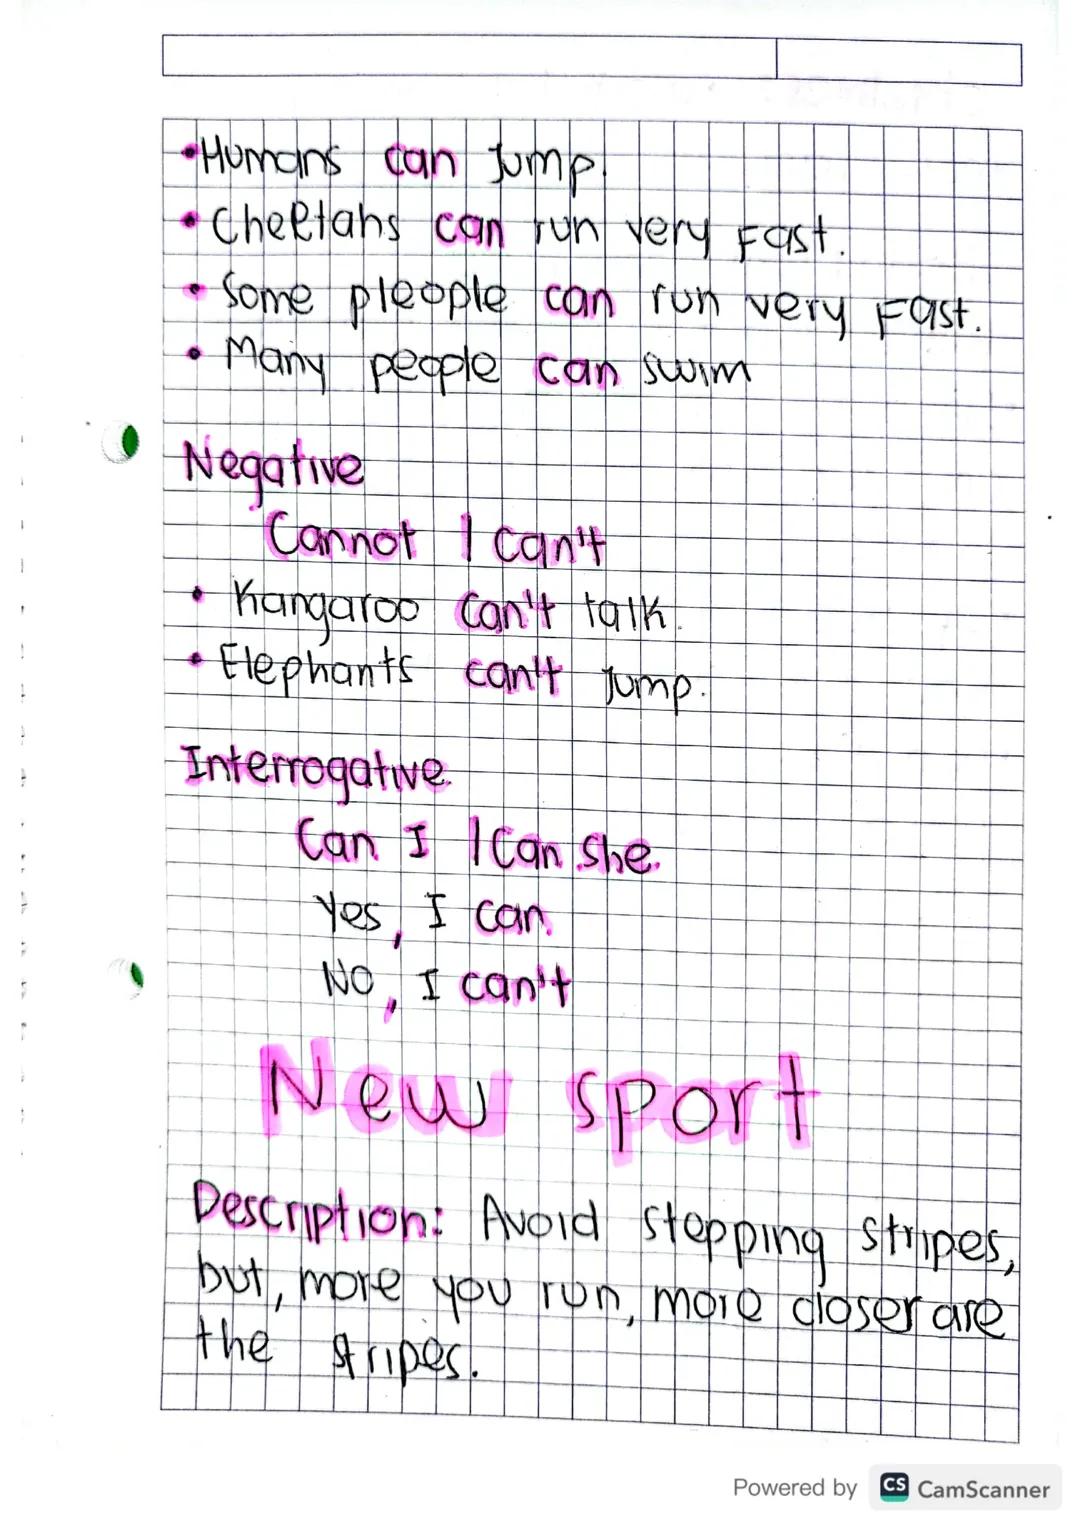 •Humans can Jump.
• Cheetahs can run very Fast.
• Some pleople can run very Fast.
• Many people can swim
Negative
Cannot / can't
• Kangaroo Can't talk.
• Elephants can't Jump.
Interrogative
Can I / Can she.
Yes, I can.
No, I can't
New sport
Description: Avoid stepping stripes,
but, more you run, more closer are
the stripes.
Powered by CS CamScanner